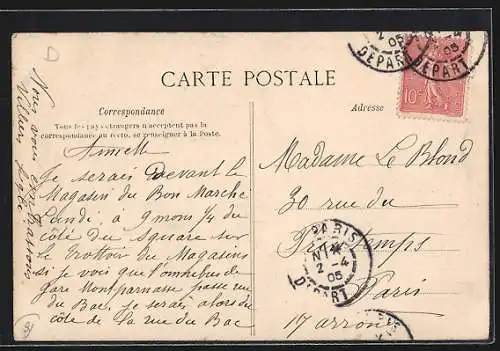 CARTE POSTALE
Correspondance
Tous les pays étrangers n'acceptent pas la
correspondance au recto, se renseigner à la Poste.
Je serais devant le
Magasin du Bon Marche
Lundi à 9 moins 1/4 du
côté du Square sur
le trottoir du Magasins
si je vois que l'omnibus de
gare Montparnasse passe rue
du Bac, je serais alors du
côté de la rue du Bac
Nous vous embrassons
Adresse
Madame Le Blond
30 rue du
Printemps
Paris
17 arron
2 -4
05
DEPART
-4
05
DEPART
10
PARIS
2 -4
05
DEPART